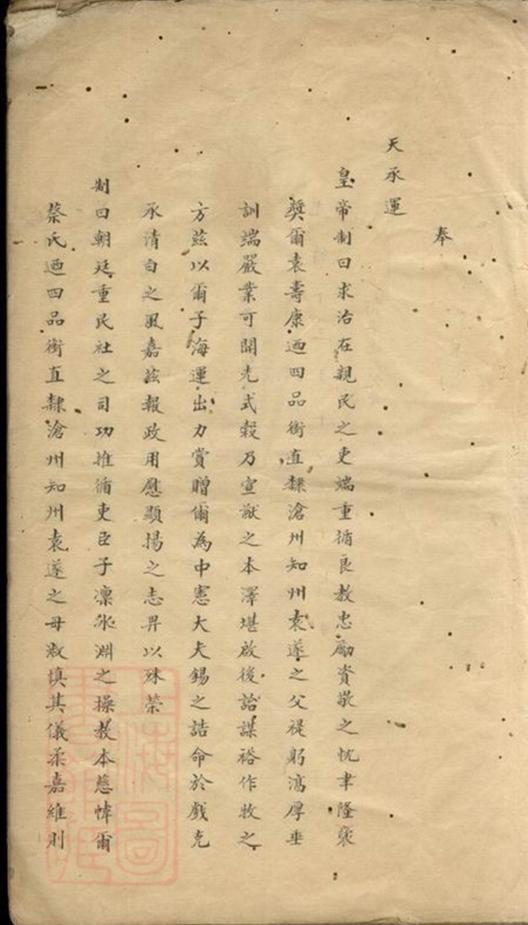 奉
天承運
皇帝制曰求治在親民之吏端重循良教忠勵資敬之忱聿隆褒
奬爾袁壽康迺四品銜直隸滄州知州袁遂之父禔躬淳厚垂
訓端嚴業可開先式榖乃宣猷之本澤堪啟後詒謀裕作牧之
方茲以爾子海運出力賞贈爾為中憲大夫錫之誥命於戲克
承清白之風嘉茲報政用慰顯揚之志畀以殊榮
制曰朝廷重民社之司功推循吏臣子凜冰淵之操教本慈幃爾
蔡氏迺四品銜直隸滄州知州袁遂之母淑慎其儀柔嘉維則